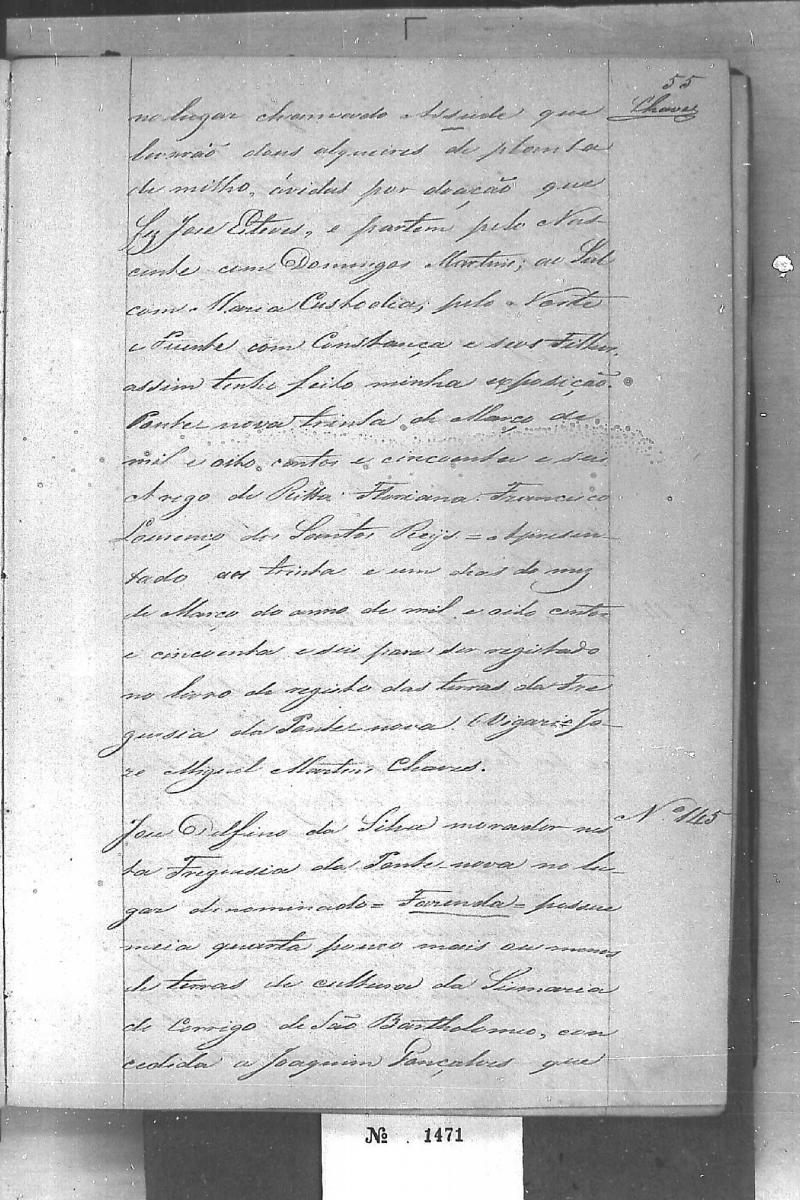 55
Chaves
no lugar chamado Assude que
levarão dous alqueires de planta
de milho, ávidas por doação que
fez Jose Esteves, e partem pelo Nas-
cente com Domingos Martins; ao Sul
com Maria Custodia; pelo Norte
e Puente com Constança e seos Filhos,
assim tenho feito minha exposição.
Ponte nova trinta de Março de
mil e oito centos e cincoenta e seis
A rogo de Ritta Floriana. Francisco
Lourenço dos Santos Reys = Apresen-
tado aos trinta e um dias do mez
de Março do anno de mil e oito centos
e cincoenta e seis para ser registado
no livro de registo das terras da Fre
guesia da Ponte nova. O Vigario Jo-
ze Miguel Martins Chaves.
Nº 145
Jose Delfino da Silva morador nes
ta Freguesia da Ponte nova no lu-
gar denominado = Fazenda = possue
meia quarta pouco mais ou menos
de terras de cultura da Sismaria
do Corrigo de São Bartholomeo, con
cedida a Joaquim Gonçalves que
Nº 1471